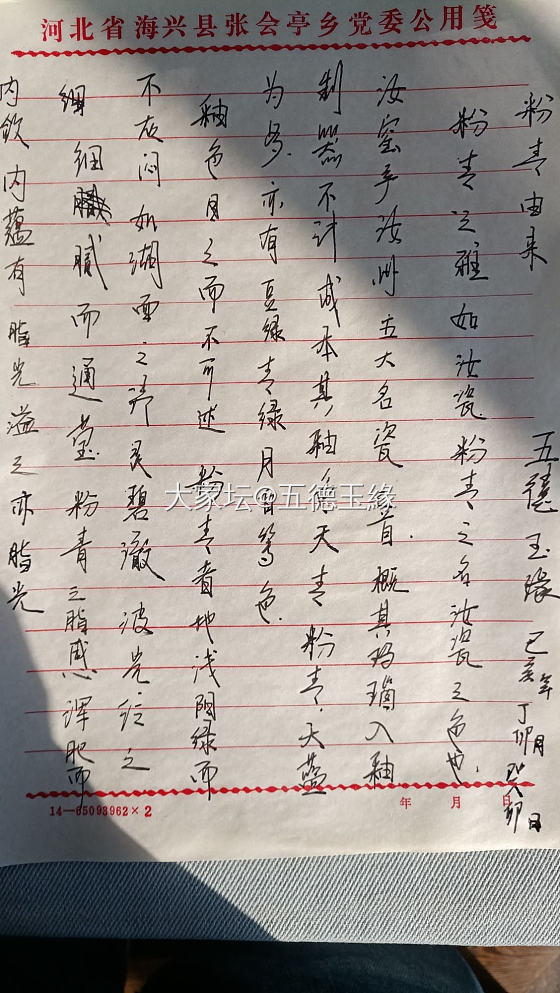 河北省海兴县张会亭乡党委公用笺
粉青由来
五德玉张 己亥年丁卯月癸卯日
粉青之雅如汝瓷粉青之名汝瓷之色也.
汝窑于汝州五大名瓷首.概其玛瑙入釉
制器不计成本其釉色天青粉青.天蓝
为多.亦有豆绿青绿月白等色.
釉色目之而不可述粉青者地浅阴绿而
不灰闷如湖面之清 碧澈波光 之
细细腻而通莹粉青之脂感浑肥而
内敛内蕴有脂光溢之亦脂光
年 月 日
14—65093962×2
大家坛@五德玉緣